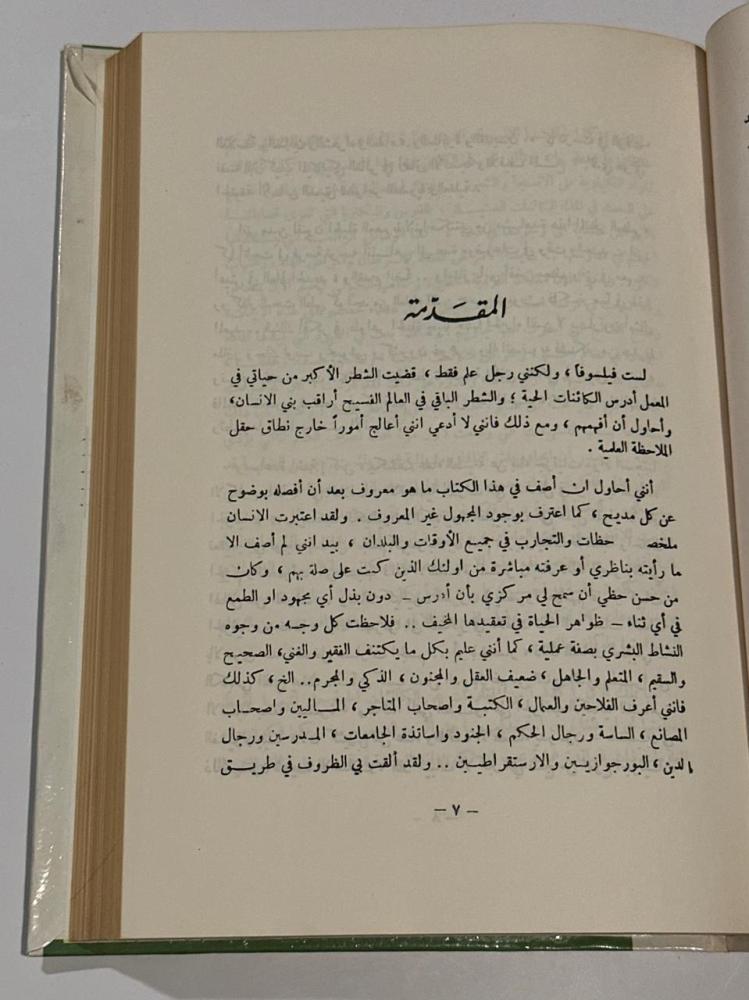 المقدّمة
لست فيلسوفاً ، ولكنني رجل علم فقط ، قضيت الشطر الأكبر من حياتي في
المعمل أدرس الكائنات الحية ؛ والشطر الباقي في العالم الفسيح أراقب بني الانسان ،
وأحاول أن أفهمهم ، ومع ذلك فانني لا أدعي انني أعالج أموراً خارج نطاق حقل
الملاحظة العلمية .
أنني أحاول ان أصف في هذا الكتاب ما هو معروف بعد أن أفصله بوضوح
عن كل مديح ، كما اعترف بوجود المجهول غير المعروف . ولقد اعتبرت الانسان
ملخص حظات والتجارب في جميع الأوقات والبلدان ، بيد انني لم أصف الا
ما رأيته بناظري أو عرفته مباشرة من اولئك الذين كنت على صلة بهم ، وكان
من حسن حظي أن سمح لي مركزي بأن أدرس – دون بذل أي مجهود او الطمع
في أي ثناء – ظواهر الحياة في تعقيدها المخيف .. فلاحظت كل وجه من وجوه
النشاط البشري بصفة عملية ، كما أنني عليم بكل ما يكتنف الفقير والغني، الصحيح
والسقيم ، المتعلم والجاهل ، ضعيف العقل والمجنون ، الذكي والمجرم .. الخ ، كذلك
فانني أعرف الفلاحين والعمال ، الكتبة واصحاب المتاجر ، الماليين واصحاب
المصانع ، الساسة ورجال الحكم ، الجنود واساتذة الجامعات ، المدرسين ورجال
الدين ، البورجوازيين والارستقراطيين .. ولقد ألقت بي الظروف في طريق
– ٧ –